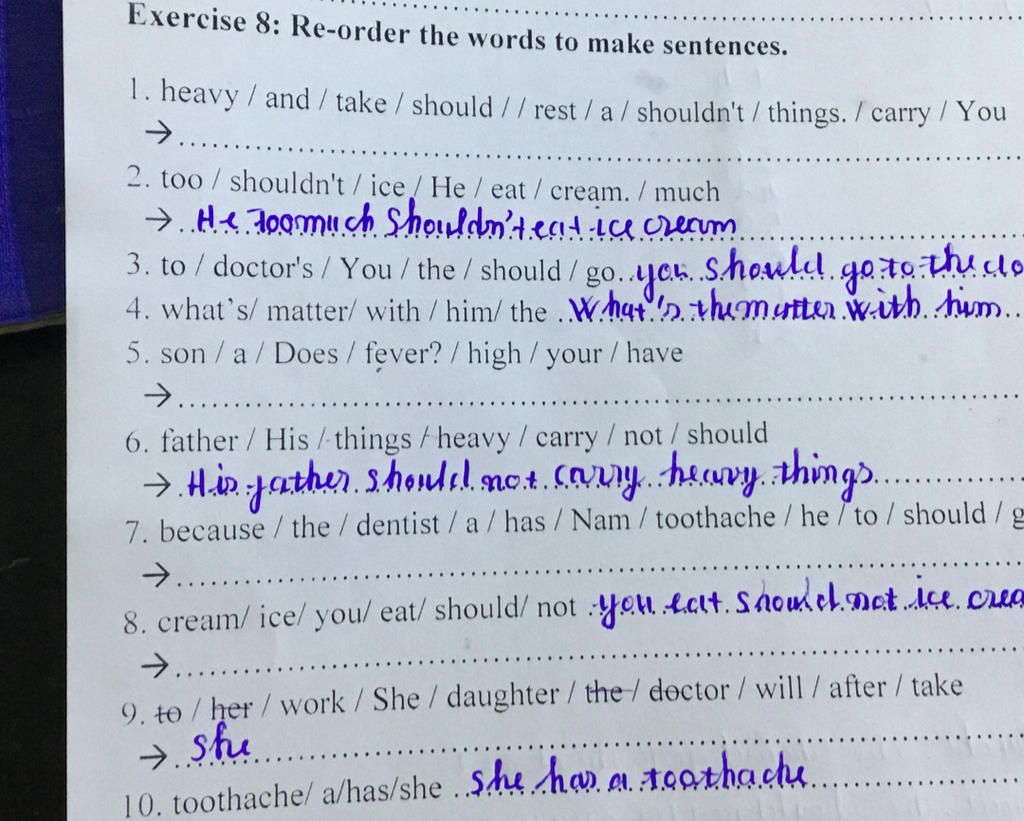 Exercise 8: Re-order the words to make sentences.
1. heavy / and / take / should / / rest / a / shouldn't / things. / carry / You
→
2. too / shouldn't / ice / He / eat / cream. / much
→ He too much shouldn't eat ice cream
3. to / doctor's / You / the / should / go you should go to the do
4. what's/ matter/ with / him/ the What's the matter with him
5. son / a / Does / fever? / high / your / have
→
6. father / His / things / heavy / carry / not / should
→ His father should not carry heavy things
7. because / the / dentist / a / has / Nam / toothache / he / to / should / g
→
8. cream/ ice/ you/ eat/ should/ not you eat should not ice crea
→
9. to / her / work / She / daughter / the / doctor / will / after / take
→ she
10. toothache/ a/has/she she has a toothache